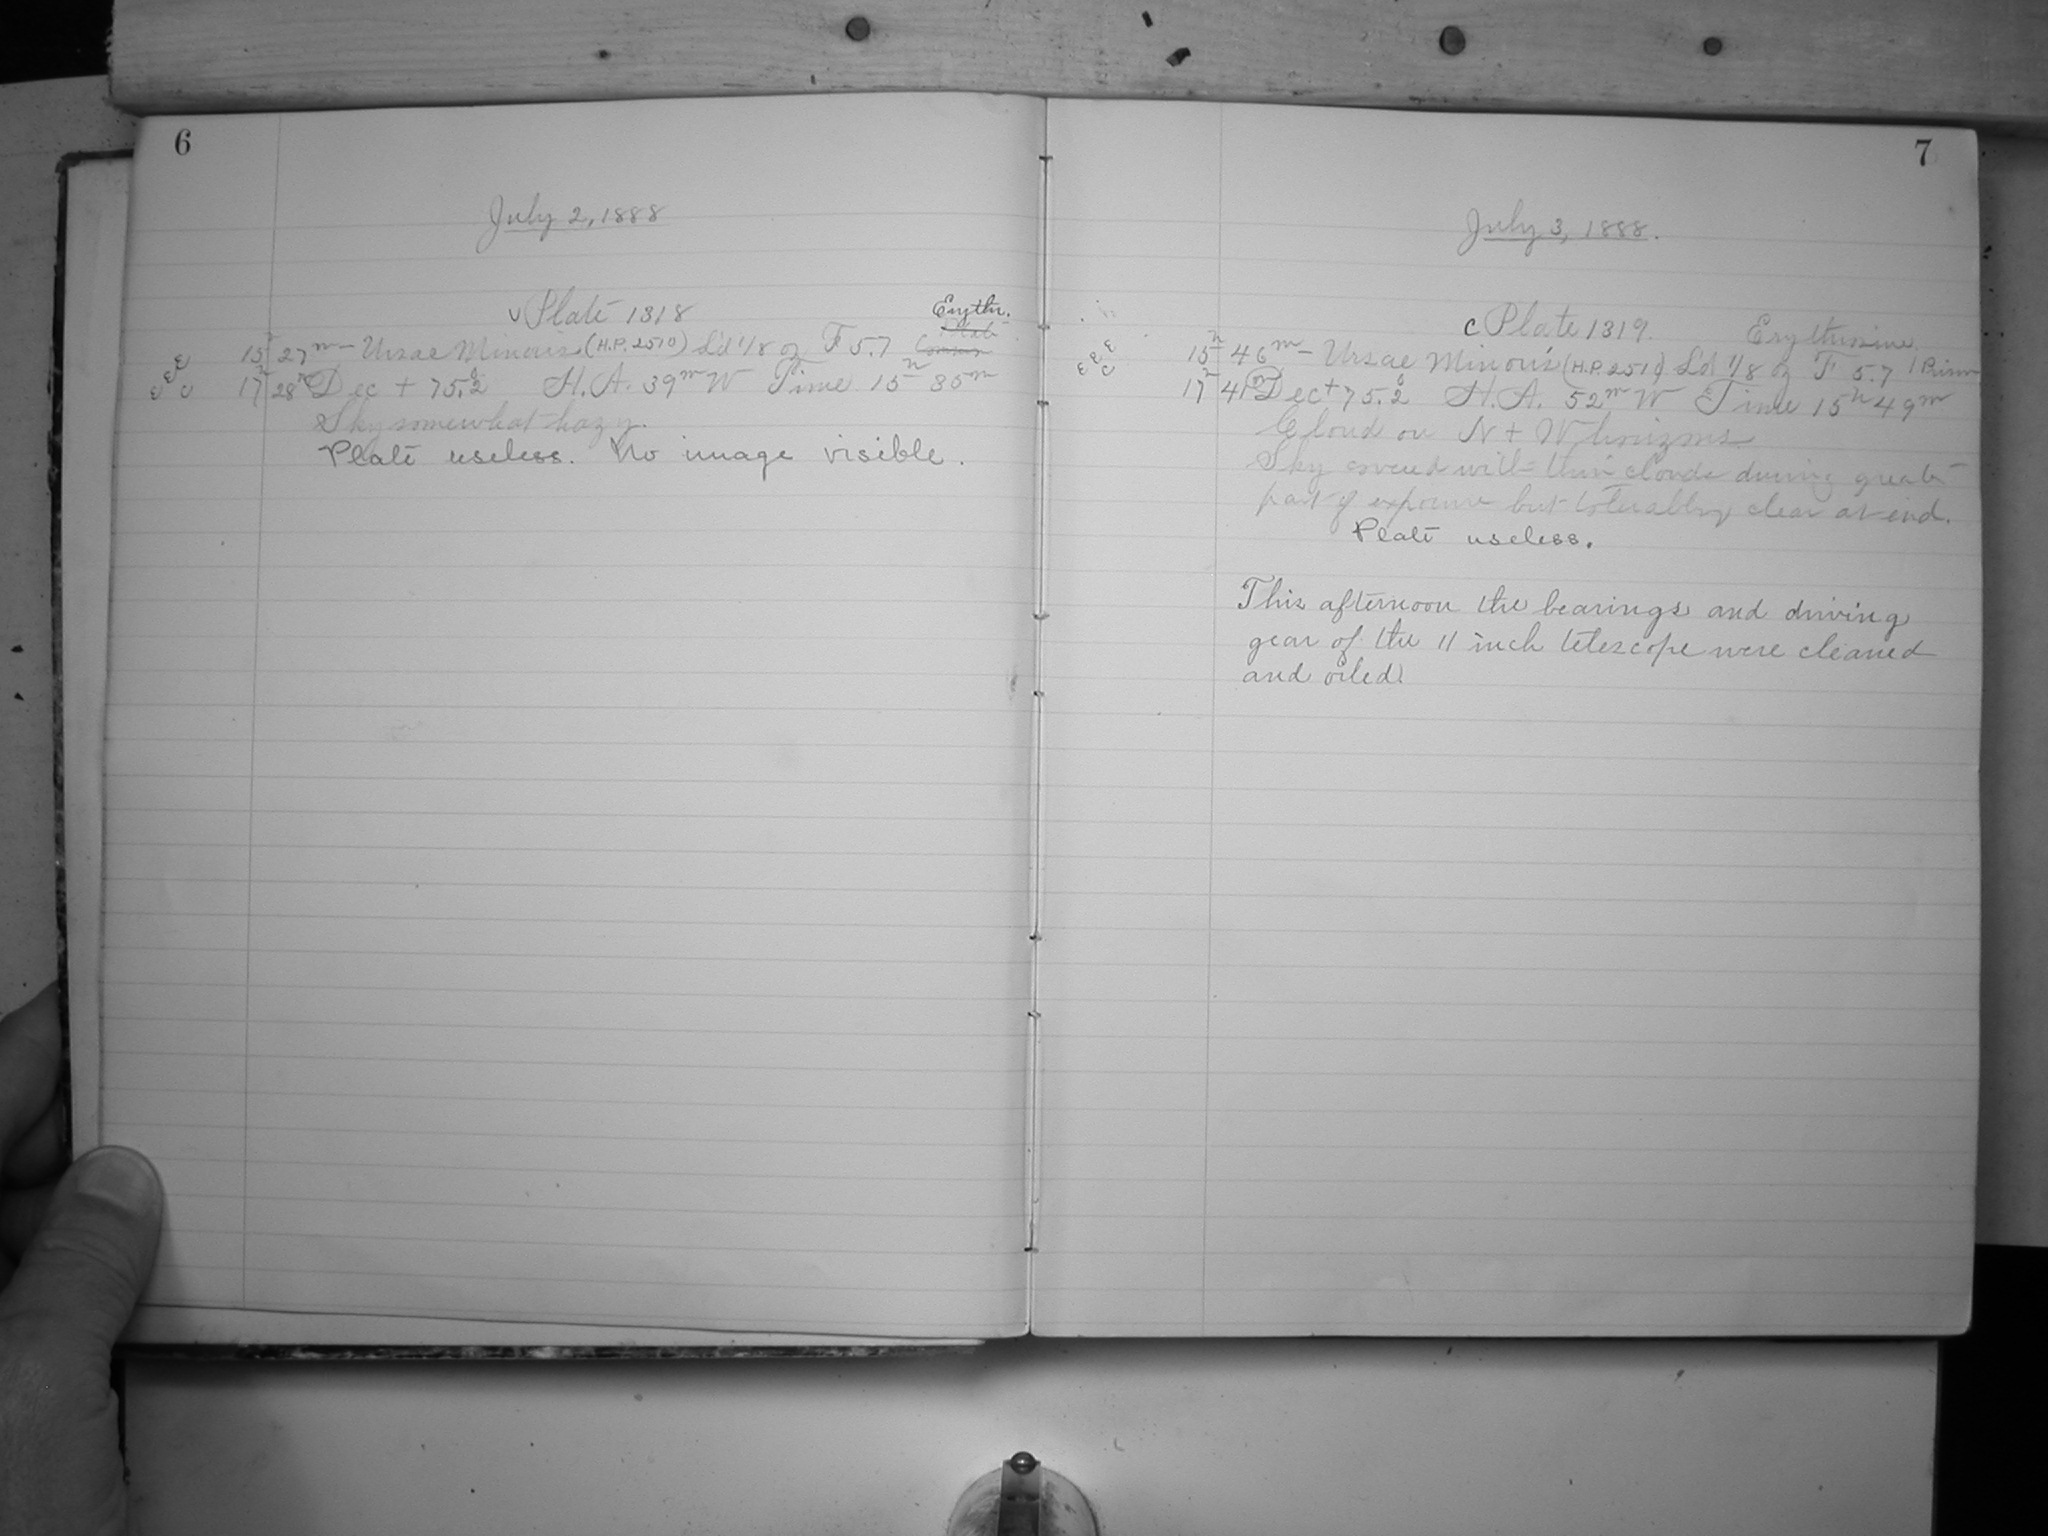 6
July 2, 1888
v Plate 1318
Erythr.
15h 27m – Ursae Minoris (H.P. 2510) S'd 1/8 oz F 5.7
17h 28m Dec + 75.°2 H.A. 39m W Time 15h 35m
Sky somewhat hazy.
Plate useless. No image visible.
7
July 3, 1888.
c Plate 1319. Erythrosine
15h 46m – Ursae Minoris (H.P. 2510) S'd 1/8 oz F 5.7 1 Prism
17h 41m Dec + 75.°2 H.A. 52m W Time 15h 49m
Cloud on N + W horizons
Sky covered with thin clouds during greater
part of exposure but tolerably clear at end.
Plate useless.
This afternoon the bearings and driving
gear of the 11 inch telescope were cleaned
and oiled.